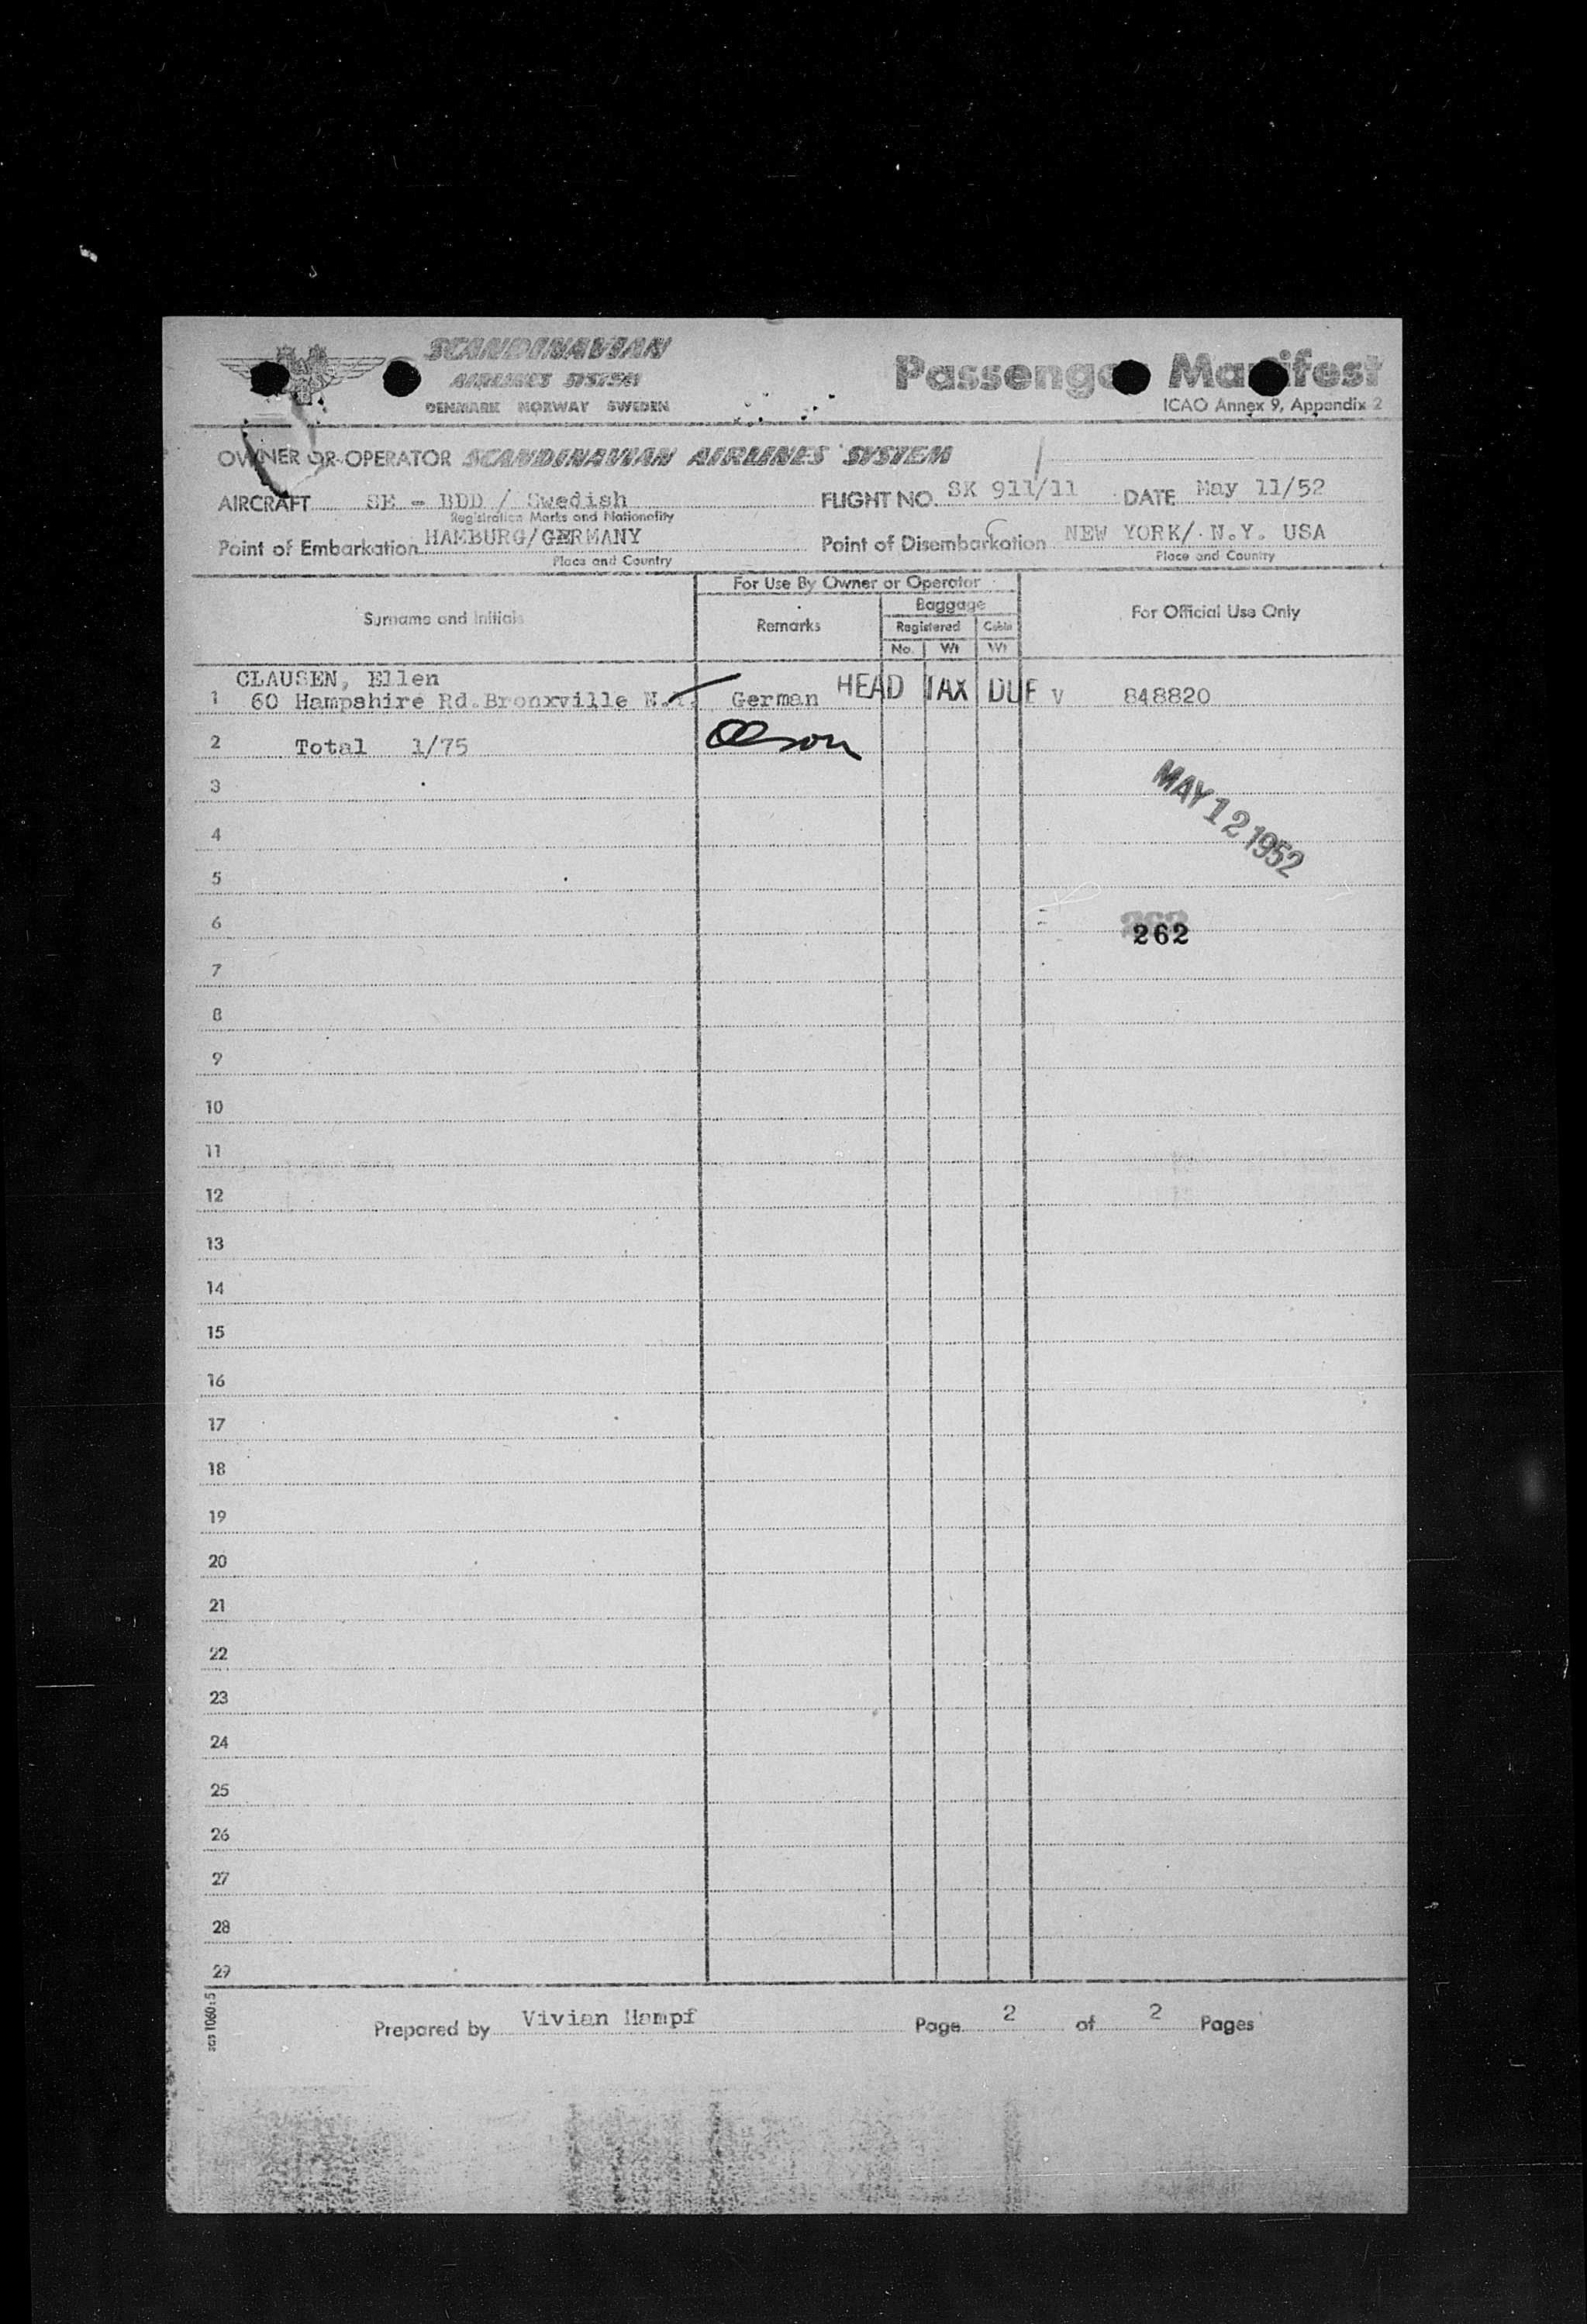 SCANDINAVIAN
AIRLINES SYSTEM
DENMARK NORWAY SWEDEN
Passenger Manifest
ICAO Annex 9, Appendix 2
OWNER OR OPERATOR SCANDINAVIAN AIRLINES SYSTEM
AIRCRAFT SE - BDD / Swedish FLIGHT NO. SK 911/11 DATE May 11/52
Registration Marks and Nationality
Point of Embarkation HAMBURG/GERMANY Point of Disembarkation NEW YORK/ N.Y. USA
Place and Country Place and Country
For Use By Owner or Operator
Surname and Initials Remarks Baggage For Official Use Only
Registered Cabin
No. Wt Wt
CLAUSEN, Ellen
1 60 Hampshire Rd.Bronxville N.Y. German HEAD TAX DUE V 848820
2 Total 1/75 Olson
3
MAY 12 1952
4
5
6 262
7
8
9
10
11
12
13
14
15
16
17
18
19
20
21
22
23
24
25
26
27
28
29
sas 1060:5
Prepared by Vivian Hampf Page 2 of 2 Pages